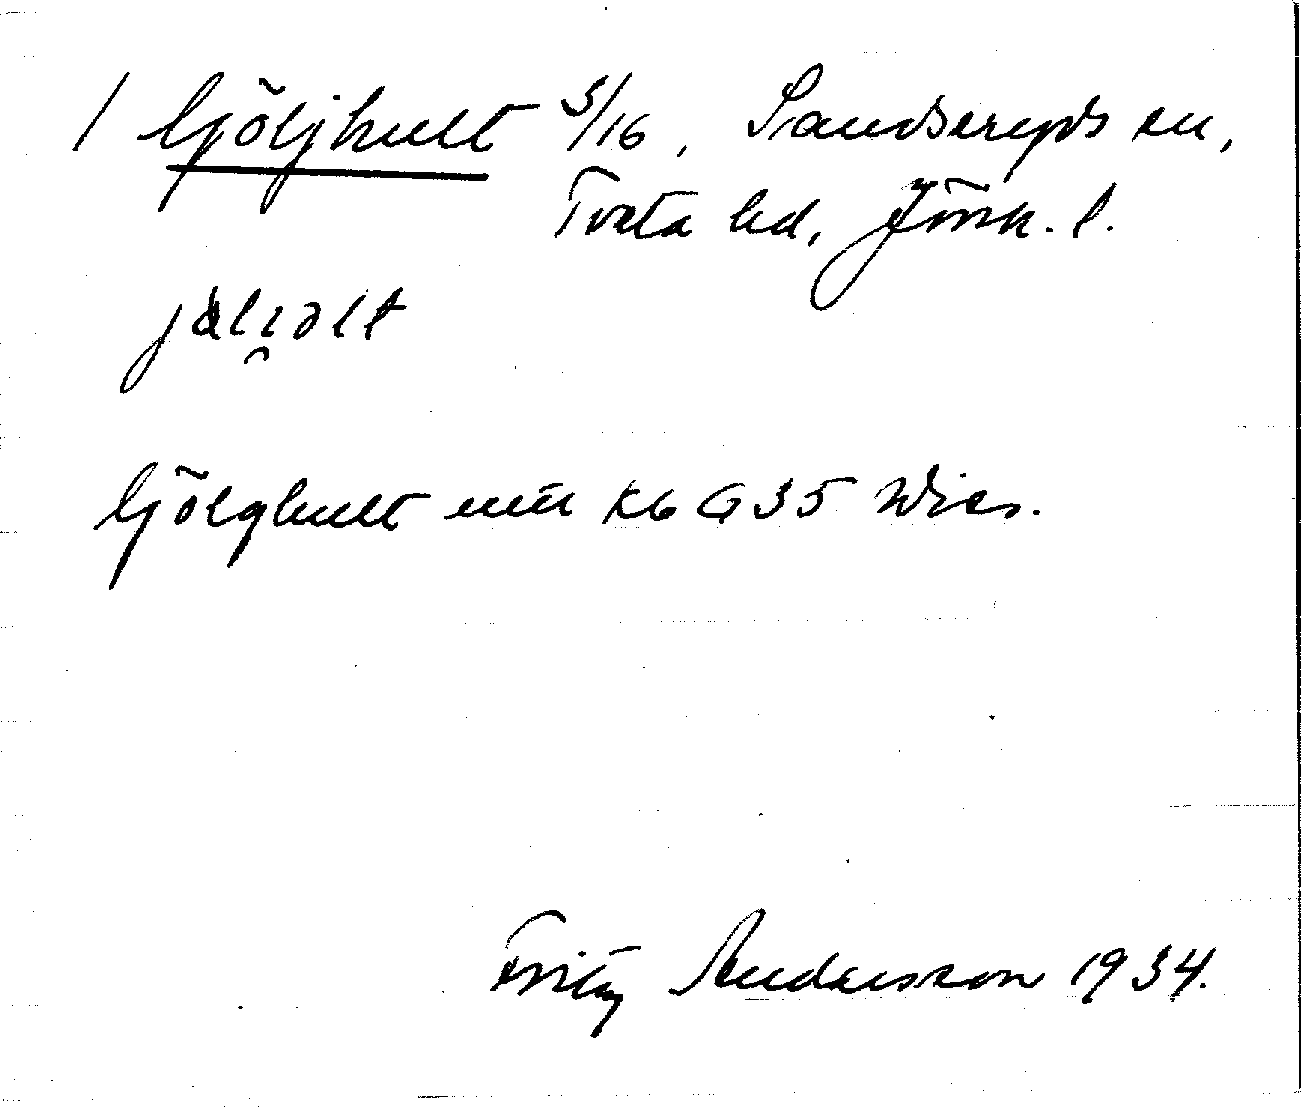 1 Ljöljhult 5/16, Landseryds sn,
Tveta hd, Jönk. l.
jàli̯ɔlt
Ljölghult m K6 G35 Wies.
Fritz Andersson 1934.